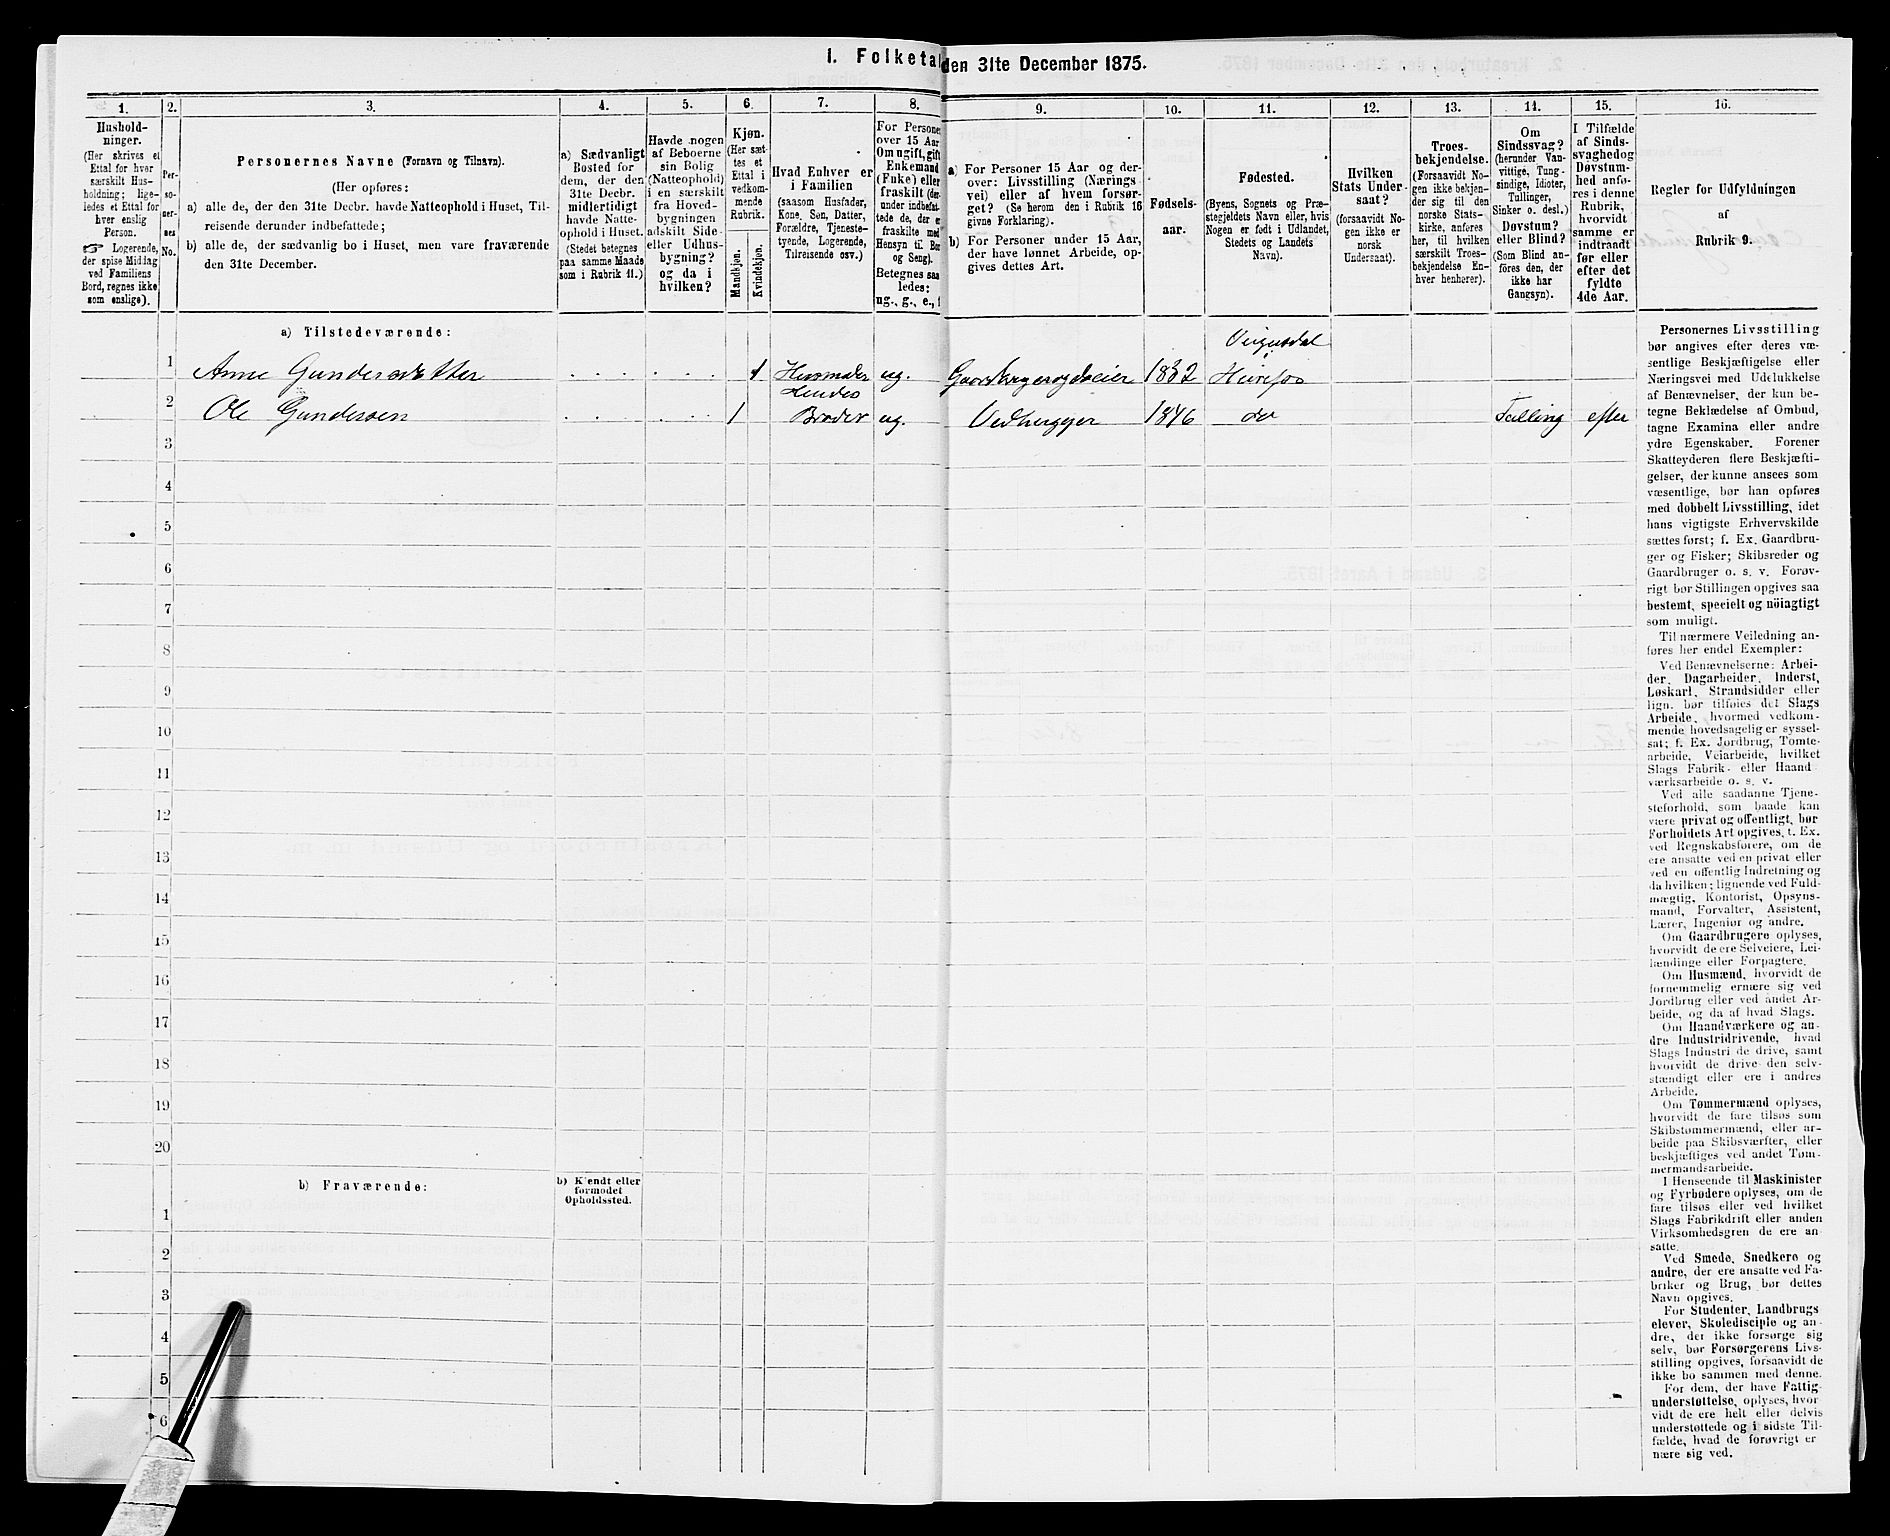 I. Folketal den 31te December 1875.
1. 2. 3. 4. 5. 6. 7. 8. 9. 10. 11. 12. 13. 14. 15. 16.
Hushold-
ninger.
(Her skrives et
Ettal for hver
særskilt Hus-
holdning; lige-
ledes et Ettal for
hver enslig
Person.
☞ Logerende,
der spise Middag
ved Familiens
Bord, regnes ikke
som enslige).
Per-
so-
ner-
nes
No.
Personernes Navne (Fornavn og Tilnavn).
(Her opføres:
a) alle de, der den 31te Decbr. havde Natteophold i Huset, Til-
reisende derunder indbefattede;
b) alle de, der sædvanlig bo i Huset, men vare fraværende
den 31te December.
a) Sædvanligt
Bosted for
dem, der den
31te Decbr.
midlertidigt
havde Natte-
ophold i Huset.
(Stedet betegnes
paa samme Maade
som i Rubrik 11.)
Havde nogen
af Beboerne
sin Bolig
(Natteophold)
i en særskilt
fra Hoved-
bygningen
adskilt Side-
eller Udhus-
bygning?
og da i
hvilken?
Kjøn.
(Her sæt-
tes et
Ettal i
vedkom-
mende
Rubrik.
Mandkjøn.
Kvindekjøn.
Hvad Enhver er
i Familien
(saasom Husfader,
Kone, Søn, Datter,
Forældre, Tjeneste-
tyende, Logerende,
Tilreisende osv.)
For Persone
over 15 Aar
Om ugift, gift
Enkemand
(Enke) eller
fraskilt (der-
under indbefat-
tede de, der e
fraskilte med
Hensyn til Bo
og Seng).
Betegnes saa
ledes:
ug., g., e., f
a) For Personer 15 Aar og der-
over: Livsstilling (Nærings
vei) eller af hvem forsør-
get? (Se herom den i Rubrik 16
givne Forklaring).
b) For Personer under 15 Aar,
der have lønnet Arbeide, op-
gives dettes Art.
Fødsels-
aar.
Fødested.
(Byens, Sognets og Præ-
stegjeldets Navn eller, hvis
Nogen er født i Udlandet,
Stedets og Landets
Navn).
Hvilken
Stats Under-
saat?
(forsaavidt No-
gen ikke er
norsk
Undersaat).
Troes-
bekjendelse.
(Forsaavidt No-
gen ikke bekjen-
der sig til den
norske Stats-
kirke, anføres
her, til hvilken
særskilt Troes-
bekjendelse En-
hver henhører).
Om
Sindssvag?
(herunder Van-
vittige, Tung-
sindige, Idioter,
Tullinger,
Sinker o. desl.)
Døvstum?
eller Blind?
(Som Blind an-
føres den, der
ikke har
Gangsyn).
I Tilfælde
af Sinds-
svaghedog
Døvstum-
hed anfø-
res i denne
Rubrik,
hvorvidt
samme er
indtraadt
før eller
efter det
fyldte
4de Aar.
Regler for Udfyldningen
af
Rubrik 9.
a) Tilstedeværende:
Veigusdal
1 Anne Gundersdatter 1 Husmoder ug. Gaardbrugerogselveier 1832 Heirefos
Hendes
2 Ole Gundersen 1 Broder ug. Vedhugger 1846 do Tulling efter
3
4
5
6
7
8
9
10
11
12
13
14
15
16
17
18
19
20
b) Fraværende:
b) Kjendt eller
formodet
Opholdssted.
1
2
3
4
5
6
Personernes Livsstilling
bør angives efter deres væ-
sentlige Beskjæftigelse eller
Næringsvei med Udelukkelse
af Benævnelser, der kun be-
tegne Beklædelse af Ombud,
tagne Examina eller andre
ydre Egenskaber. Forener
Skatteyderen flere Beskjæfti-
gelser, der kunne ansees som
væsentlige, bør han opføres
med dobbelt Livsstilling, idet
hans vigtigste Erhvervskilde
sættes først; f. Ex. Gaardbru-
ger og Fisker; Skibsreder og
Gaardbruger o. s. v. Forøv-
rigt bør Stillingen opgives saa
bestemt, specielt og nöiagtigt
som muligt.
Til nærmere Veiledning an-
føres her endel Exempler:
Ved Benævnelserne: Arbei-
der, Dagarbeider, Inderst,
Løskarl, Strandsidder eller
lign. bør tilføies det Slags
Arbeide, hvormed vedkom-
mende hovedsagelig er syssel-
sat; f. Ex. Jordbrug, Tomte-
arbeide, Veiarbeide, hvilket
Slags Fabrik- eller Haand
værksarbeide o. s. v.
Ved alle saadanne Tjene-
steforhold, som baade kan
være privat og offentligt, bør
Forholdets Art opgives, t. Ex.
ved Regnskabsførere, om de
ere ansatte ved en privat eller
ved en offentlig Indretning og
da hvilken; lignende ved Fuld-
mægtig, Kontorist, Opsyns-
mand, Forvalter, Assistent,
Lærer, Ingeniør og andre.
Om Gaardbrugere oplyses,
hvorvidt de ere Selveiere, Lei-
lændinge eller Forpagtere.
Om Husmænd, hvorvidt de
fornemmelig ernære sig ved
Jordbrug eller ved andet Ar-
beide, og da af hvad Slags.
Om Haandværkere og an-
dre Industridrivende, hvad
Slags Industri de drive, samt
hvorvidt de drive den selv-
stændigt eller ere i andres
Arbeide.
Om Tømmermænd oplyses,
hvorvidt de fare tilsøs som
Skibstømmermænd, eller ar-
beide paa Skibsværfter, eller
beskjæftiges ved andet Tøm-
mermandsarbeide.
I Henseende til Maskinister
og Fyrbødere oplyses, om de
fare tilsøs eller ved hvilket
Slags Fabrikdrift eller anden
Virksomhedsgren de ere an-
satte.
Ved Smede, Snedkere og
andre, der ere ansatte ved Fa-
briker og Brug, bør dettes
Navn opgives.
For Studenter, Landbrugs
elever, Skoledisciple og an-
dre, der ikke forsørge sig
selv, bør Forsørgerens Livs-
stilling opgives, forsaavidt de
ikke bo sammen med denne.
For dem, der have Fattig-
understøttelse, oplyses, hvor
vidt de ere helt eller delvis
understøttede og i sidste Til-
fælde, hvad de forøvrigt er
nære sig ved.